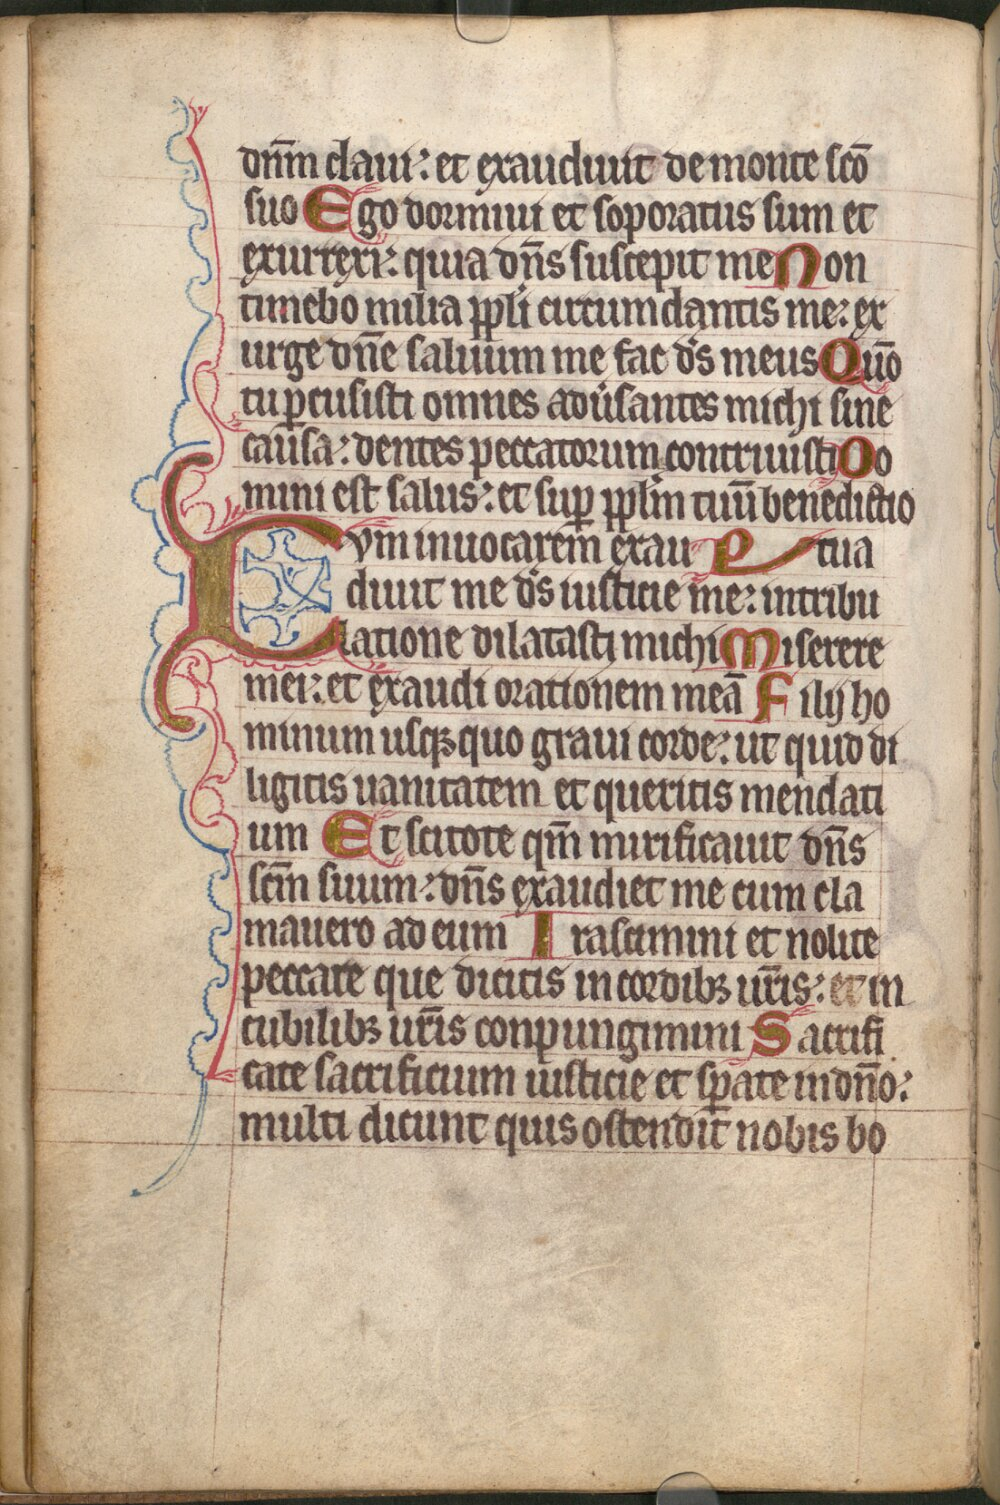 dn̄m claui: et exaudiuit de monte scō
suo Ego dormiui et soporatus sum et
exurrexi: quia dn̄s suscepit me Non
timebo milia ppl̄i circumdantis me: ex
urge dn̄e saluum me fac ds̄ meus Qūo
tu ꝑcusisti omnes adūsantes michi sine
causa: dentes peccatorum contriuisti Do
mini est salus: et suꝑ ppl̄m tuū benedictio
Cvm inuocarem exau tua
diuit me ds̄ iusticie me: in tribu
latione dilatasti michi Miserere
mei: et exaudi orationem meā Filij ho
minum usqꝫ quo graui corde: ut quid di
ligitis uanitatem et queritis mendati
um Et scitote qm̄ mirificauit dn̄s
scm̄ suum: dn̄s exaudiet me cum cla
mauero ad eum Irascimini et nolite
peccare que dicitis in cordibꝫ ur̄is: et in
cubilibꝫ ur̄is conpungimini Sacrifi
cate sacrificium iusticie et sꝑate in dn̄o:
multi dicunt quis ostendit nobis bo